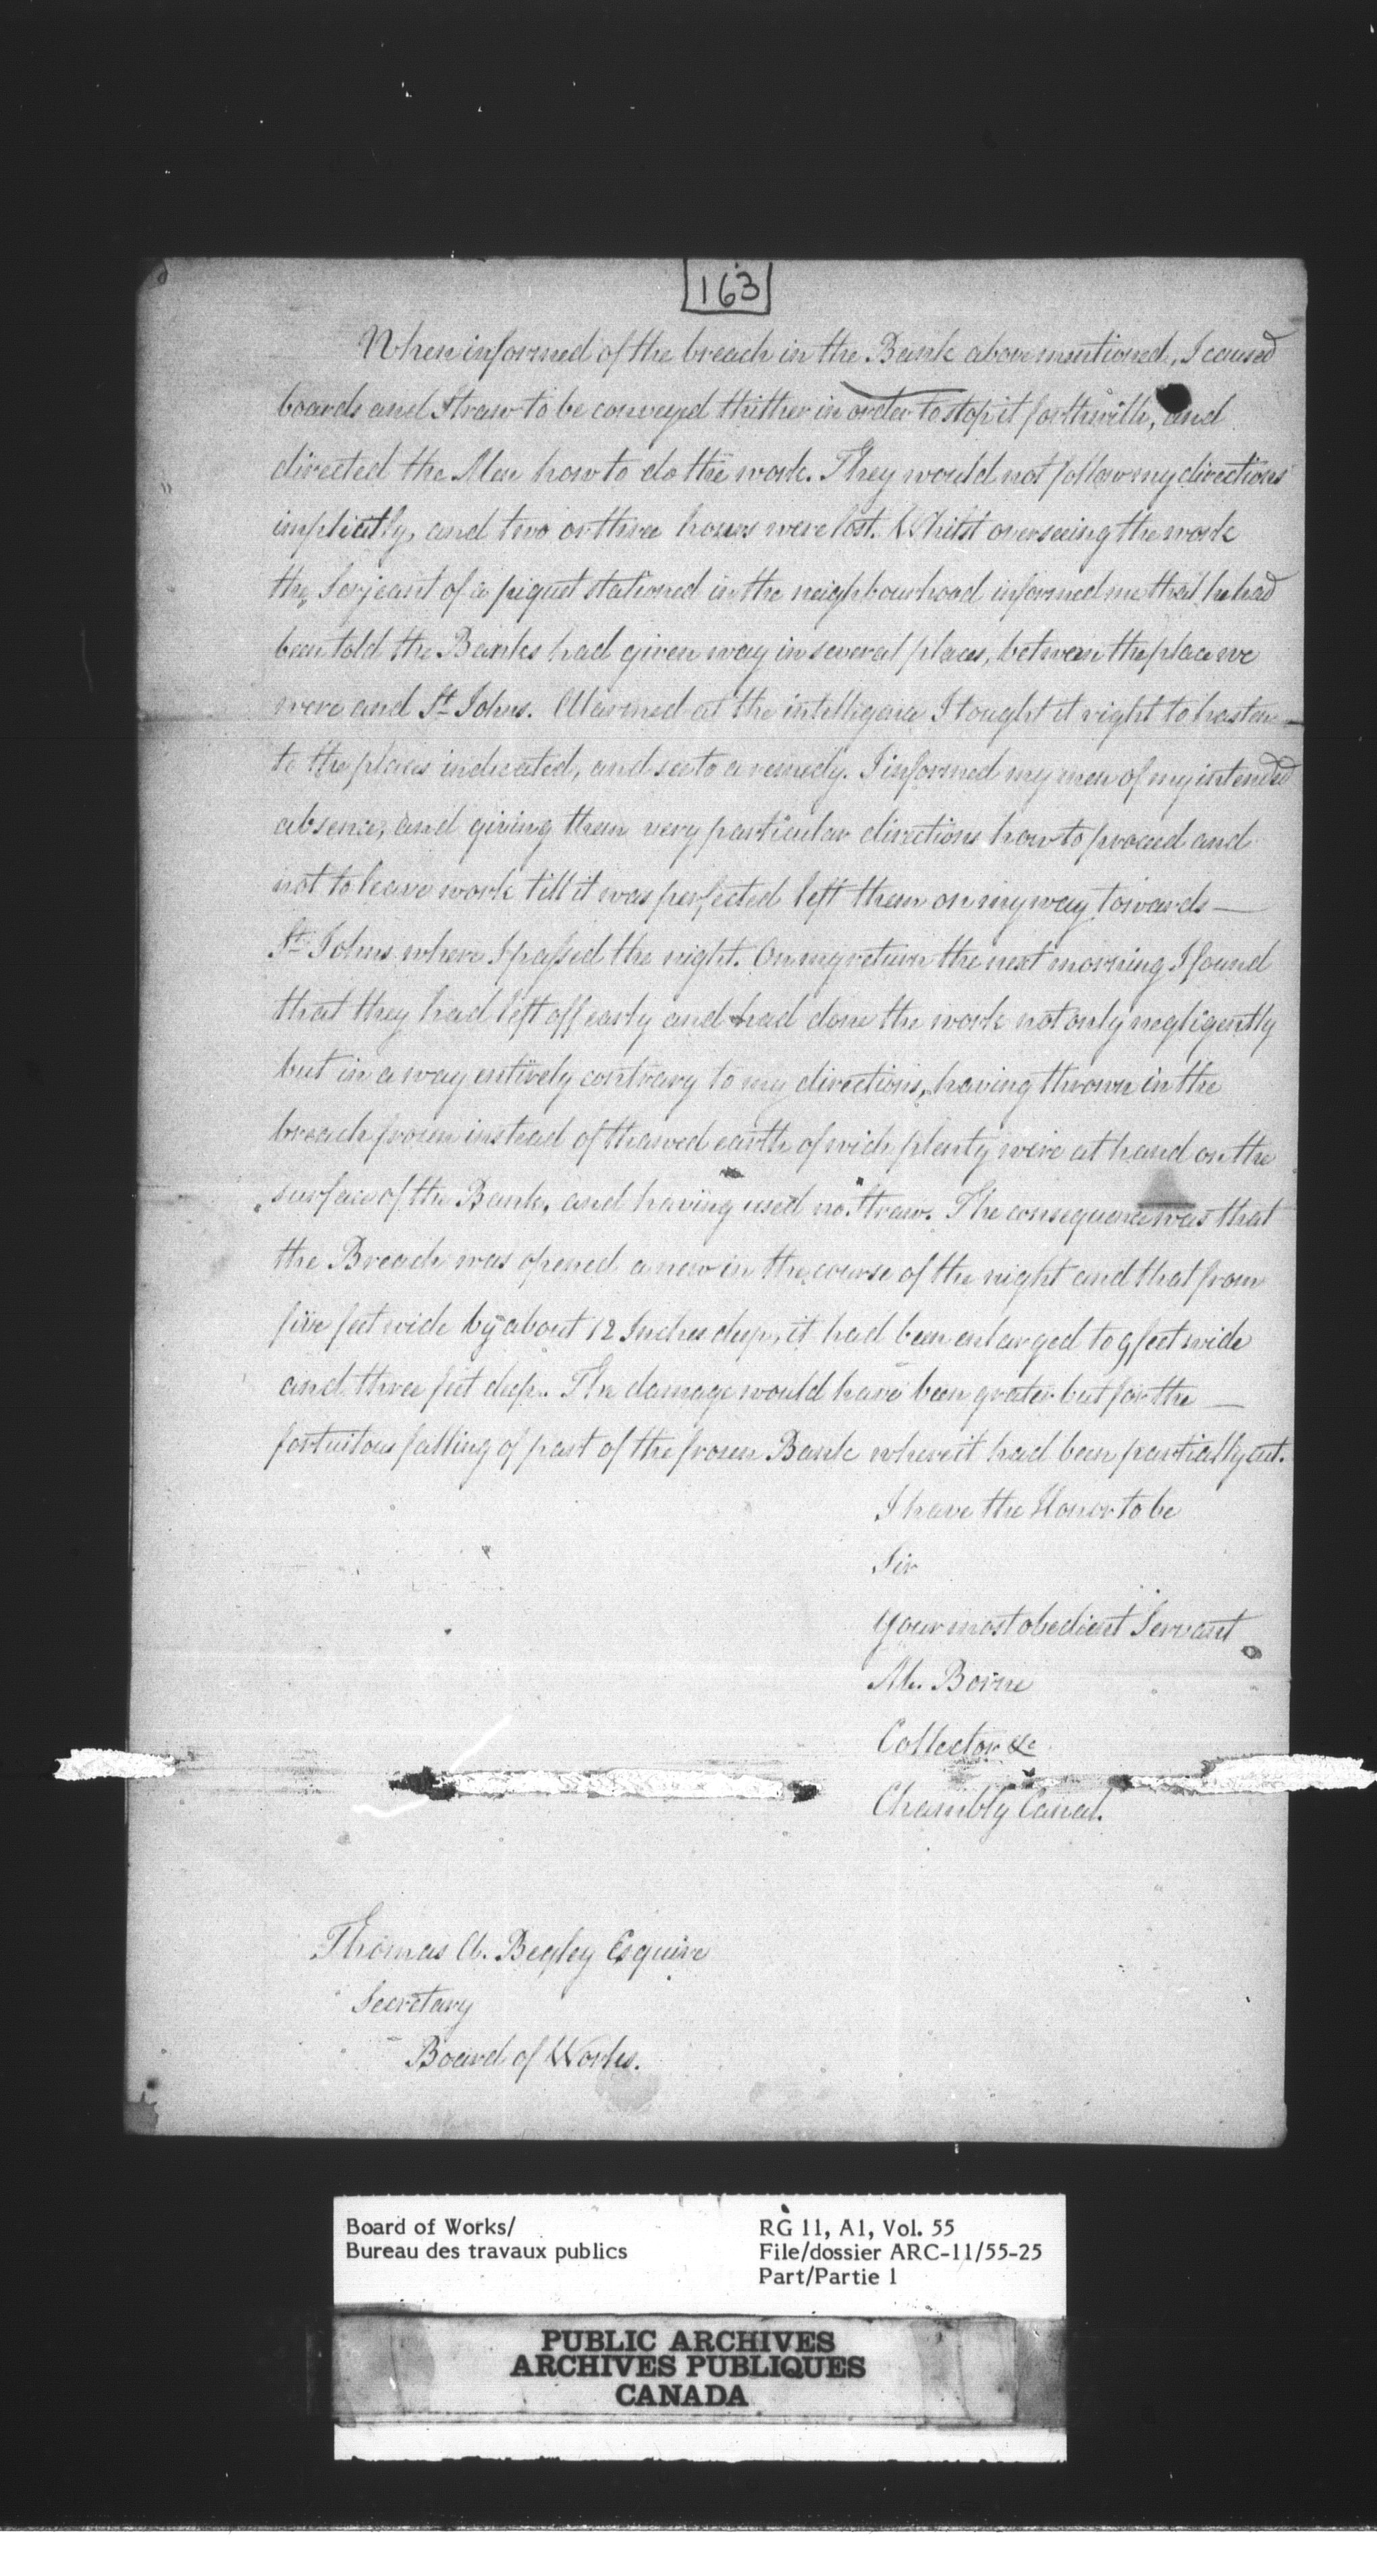 163
When informed of the breach in the Bank above mentioned, I caused
boards and Straw to be conveyed thither in order to stop it forthwith, and
directed the Men how to do the work. They would not follow my directions
implicitly, and two or three hours were lost. Whilst overseeing the work
the Serjeant of a piquet stationed in the neighbourhood informed me that he had
been told the Banks had given way in several places, between the place we
were and St Johns. Alarmed at the intelligence I tought it right to hasten
to the places indicated, and see to a remedy. I informed my men of my intended
absence, and giving them very particular directions how to proceed and
not to leave work till it was perfected left them on my way towards —
St Johns where I passed the night. On my return the next morning I found
that they had left off early and had done the work not only negligently
but in a way entirely contrary to my directions, having thrown in the
breach frozen instead of thawed earth of wich plenty were at hand on the
surface of the Bank, and having used no Straw. The consequence was that
the Breach was opened anew in the course of the night and that from
five feet wide by about 12 Inches deep, it had been enlarged to 9 feet wide
and three feet deep. The damage would have been grater but for the —
fortuitous falling of part of the frozen Bank where it had been partially cut.
I have the Honor to be
Sir
Your most obedient Servant
Borne
Collector &c
Chambly Canal.
Thomas A. Begley Esquire
Secretary
Board of Works.
Board of Works/
Bureau des travaux publics
RG 11, A1, Vol. 55
File/dossier ARC-11/55-25
Part/Partie 1
PUBLIC ARCHIVES
ARCHIVES PUBLIQUES
CANADA